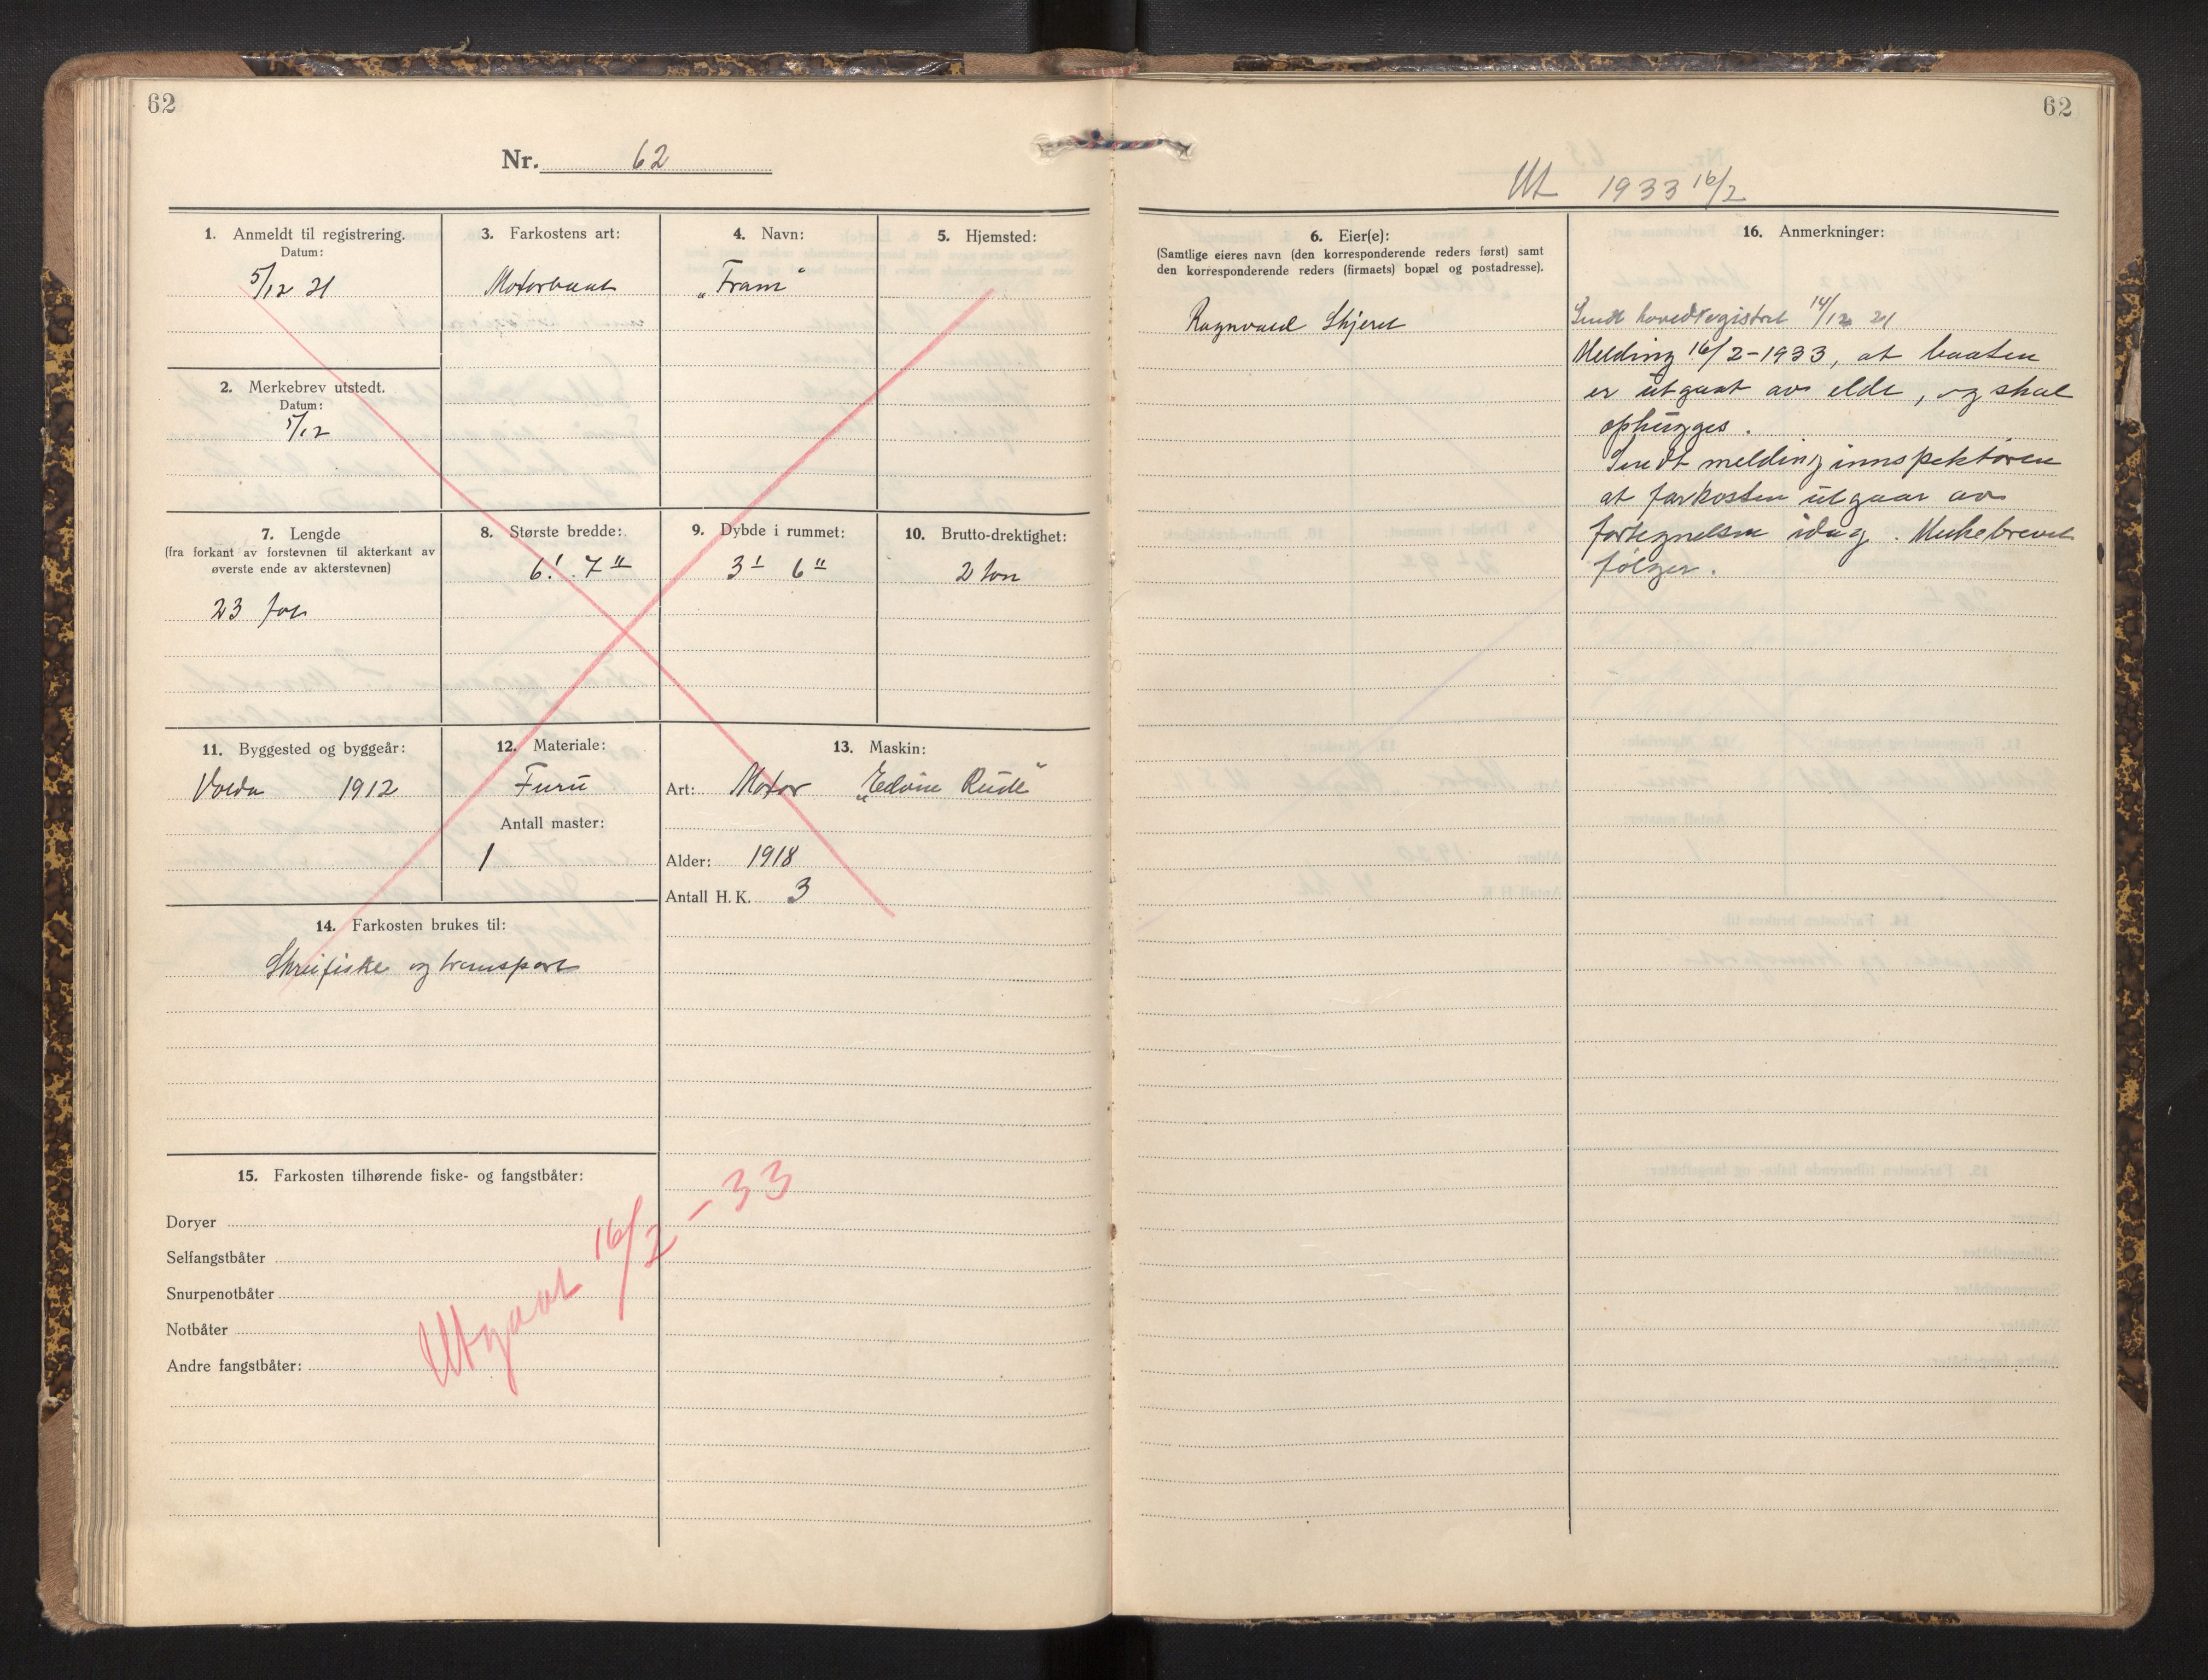 62
Nr. 62
1. Anmeldt til registrering.
Datum:
5/12 21
2. Merkebrev utstedt.
Datum:
5/12
3. Farkostens art:
Motorbaat
4. Navn:
„Fram"
5. Hjemsted:
7. Lengde
(fra forkant av forstevnen til akterkant av
øverste ende av akterstevnen)
23 fot
8. Største bredde:
6' 7"
9. Dybde i rummet:
3' 6"
10. Brutto-drektighet:
2 ton
11. Byggested og byggeår:
Volda 1912
12. Materiale:
Furu
Antall master:
1
13. Maskin:
Art: Motor „Edvin Rude"
Alder: 1918
Antall H. K. 3
14. Farkosten brukes til:
Skreifiske og transport
15. Farkosten tilhørende fiske- og fangstbåter:
Doryer
Selfangstbåter
Snurpenotbåter
Notbåter
Andre fangstbåter:
Utgaat 16/2 - 33
62
Ut 1933 16/2
6. Eier(e):
(Samtlige eieres navn (den korresponderende reders først) samt
den korresponderende reders (firmaets) bopæl og postadresse).
Ragnvald Skjeret
16. Anmerkninger:
Sendt hovedregistret 14/12 21
Melding 16/2-1933, at baaten
er utgaat av elde, og skal
ophugges.
Sendt melding innspektøren
at farkosten utgaar av
fortegnelsen idag. Merkebrevet
følger.